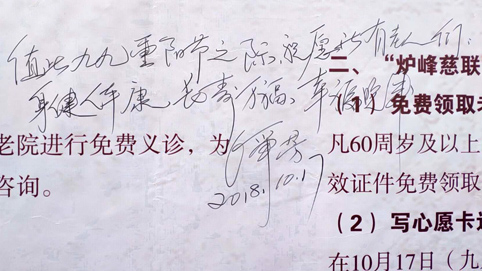 值此九九重阳节之际,祝愿所有老人们:
身健人年康 长寿万福、幸福晚年
2018.10.17
老院进行免费义诊,为
咨询。
二、“炉峰慈联
(1)免费领取老
凡60周岁及以上
效证件免费领取
(2)写心愿卡送
在10月17日(九